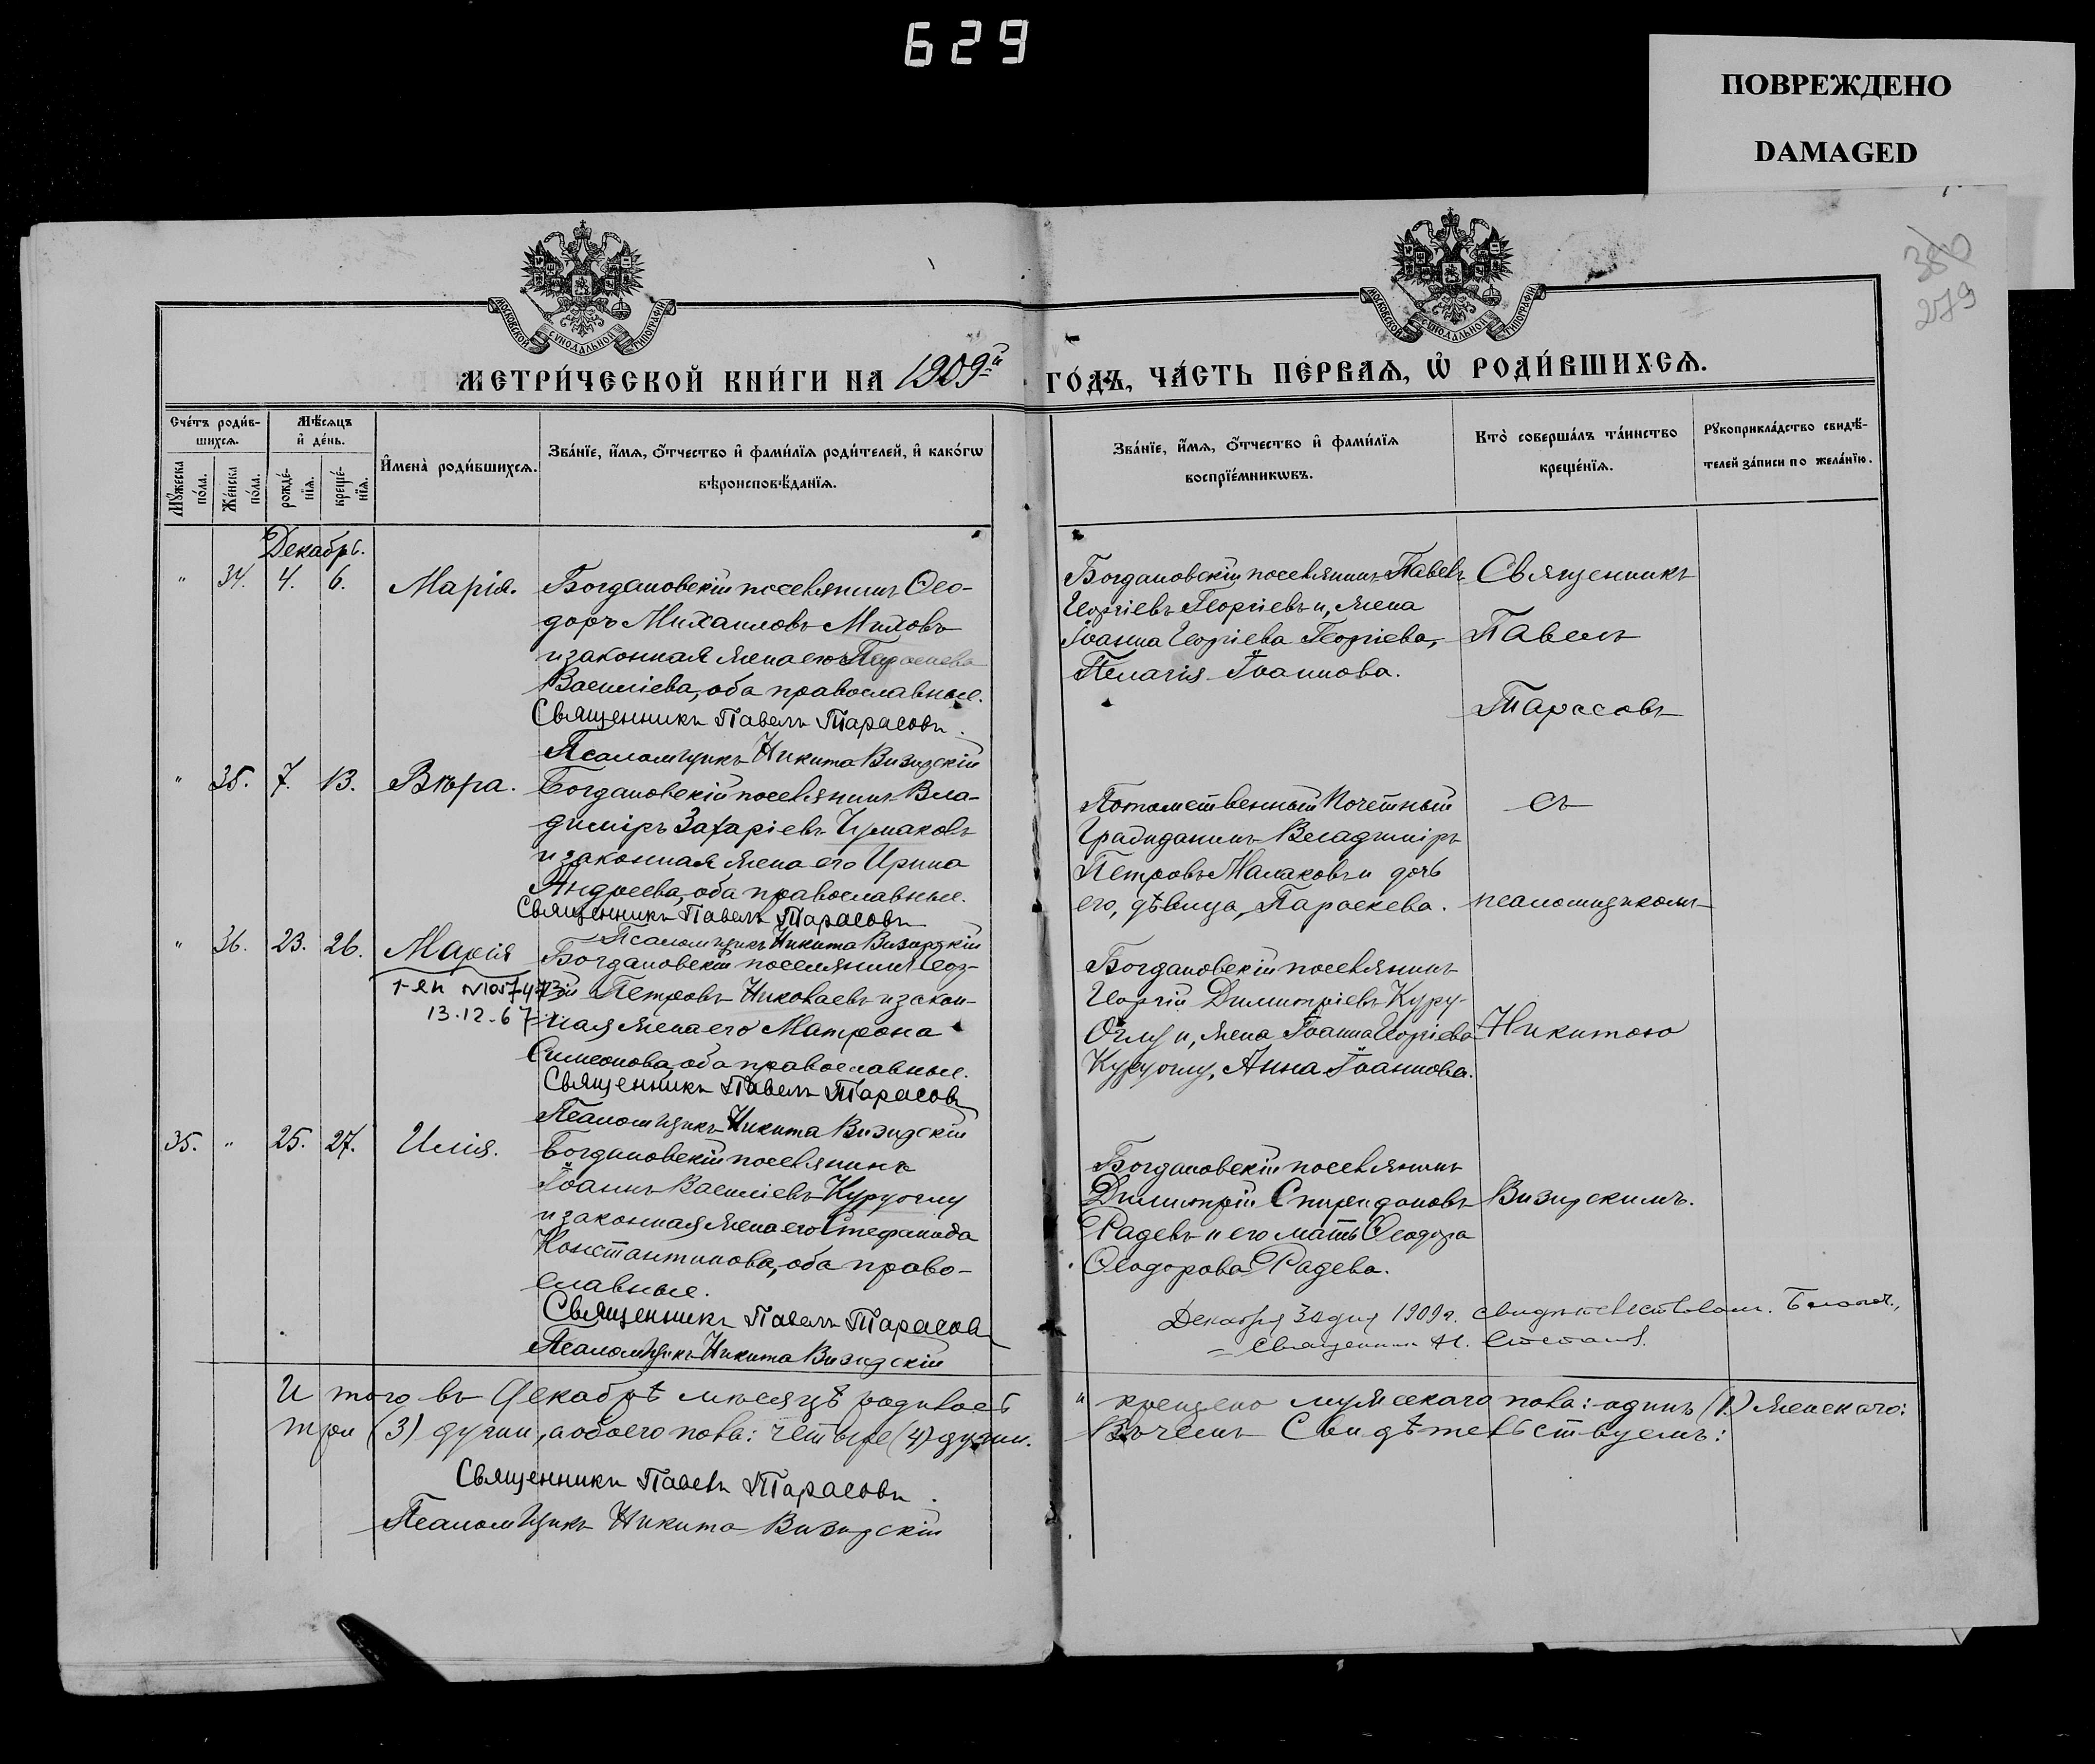 629
ПОВРЕЖДЕНО
DAMAGED
380
279
МОСКОВСКОЙ СУНОДАЛЬНОЙ ТИПОГРАФІИ
МОСКОВСКОЙ СУНОДАЛЬНОЙ ТИПОГРАФІИ
МЕТРИ́ЧЕСКОЙ КНИ́ГИ НА 1909й ГО́ДЪ, ЧА́СТЬ ПЕ́РВАѦ, Ѽ РОДИ́ВШИХСѦ.
Сче́тъ роди́в-
шихсѧ.
Мꙋ́жеска по́ла.
Же́нска по́ла.
Мѣ́сѧцъ
и҆ де́нь.
рожде́-
нїѧ.
креще́-
нїѧ.
И҆мена̀ роди́вшихсѧ.
Зва́нїе, и҆́мѧ, ѻ҆́тчество и҆ фами́лїѧ роди́телей, и҆ како́гѡ
вѣроисповѣ́данїѧ.
Зва́нїе, и҆́мѧ, ѻ҆́тчество и҆ фами́лїѧ
воспрїе́мникѡвъ.
Кто̀ соверша́лъ та́инство
креще́нїѧ.
Рꙋкоприкла́дство свидѣ́-
телей за́писи по жела́нїю.
Декабрь.
" 34. 4. 6. Марія. Богдановскій поселянинъ Ѳео-
доръ Михаиловъ Миховъ
и законная жена его Параскева
Василіева, оба православные.
Священникъ Павелъ Тарасовъ.
Псаломщикъ Никита Визирскій
Богдановскій поселянинъ Павелъ
Георгіевъ Георгіевъ и, жена
Іоанна Георгіева Георгіева,
Пелагія Іоаннова.
Священникъ
Павелъ
Тарасовъ
" 35. 7. 13. Вѣра. Богдановскій поселянинъ Вла-
диміръ Захаріевъ Чумаковъ
и законная жена его Ирина
Андреева, оба православные.
Священникъ Павелъ Тарасовъ
Псаломщикъ Никита Визирскій
Потомственный Почетный
Гражданинъ Владиміръ
Петровъ Малаковъ и дочь
его, дѣвица, Параскева.
съ
псаломщикомъ
" 36. 23. 26. Марія Богдановскій поселянинъ Геор-
гій Петровъ Николаевъ и закон-
ная жена его Матрона
Симеонова, оба православные.
Священникъ Павелъ Тарасовъ
Псаломщикъ Никита Визирскій
13.12.67
Богдановскій поселянинъ
Георгій Димитріевъ Куру-
Оглу и, жена Іоанна Георгіева
Куруоглу, Анна Іоаннова.
Никитою
35. " 25. 27. Илія. Богдановскій поселянинъ
Іоаннъ Василіевъ Куруоглу
и законная жена его Стефанида
Константинова, оба право-
славные.
Священникъ Павелъ Тарасовъ
Псаломщикъ Никита Визирскій
Богдановскій поселянинъ
Димитрій Спиридоновъ
Радевъ и его мать Ѳеодора
Ѳеодорова Радева.
Визирскимъ.
Декабря 30 дня 1909 г. свидѣтельствовалъ.
Священникъ Н.
И того въ Декабрѣ мѣсяцѣ родилось и крещено мужескаго пола: одинъ (1.) женскаго:
три (3) души, а обоего пола: четыре (4) души. Въ чемъ Свидѣтельствуемъ:
Священникъ Павелъ Тарасовъ.
Псаломщикъ Никита Визирскій